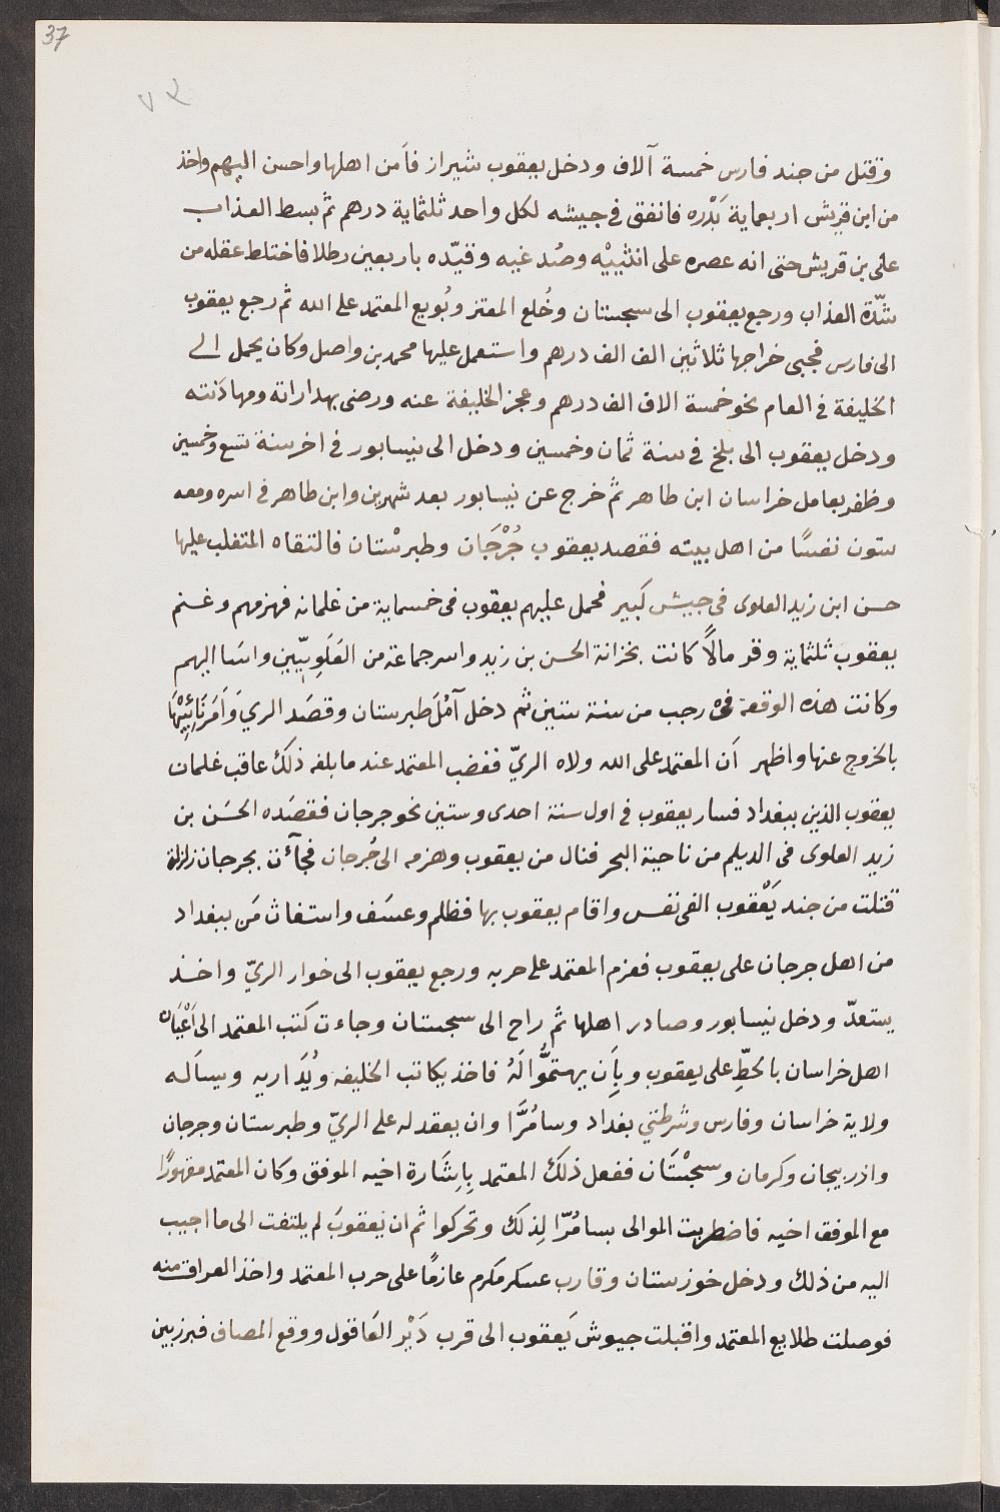 37
٧٢
وقتل من جند فارس خمسة آلاف ودخل يعقوب شيراز فأمن اهلها واحسن اليهم واخذ
من ابن قريش اربعماية بَدْره فانفق في جيشه لكل واحد ثلثماية درهم ثم بسط العذاب
على بن قريش حتى انه عصره على انثييْه وصُدغيه وقيّده باربعين رطلا فاختلط عقله من
شدّة العذاب ورجع يعقوب الى سجستان وخُلع المعتز وبُويع المعتمد على الله ثم رجع يعقوب
الى فارس فجبى خراجها ثلاثين الف الف درهم واستعمل عليها محمد بن واصل وكان يحمل الى
الخليفة في العام نحو خمسة الاف الف درهم وعجز الخليفة عنه ورضى بمداراته ومهادَنته
ودخل يعقوب الى بلخ في سنة ثمان وخمسين ودخل الى نيسابور في اخر سنة تسع وخمسين
وظفر بعامل خراسان ابن طاهر ثم خرج عن نيسابور بعد شهرين وابن طاهر في اسره ومعه
ستون نفسًا من اهل بيته فقصد يعقوب جُرْجَان وطبرسْتان فالتقاه المتغلب عليها
حسن ابن زيد العلوى فى جيش كَبير فحمل عليهم يعقوب فى خمسماية من غلمانه فهزمهم وغنم
يعقوب ثلثماية وقر مالًا كانت بخزانة الحسن بن زيد واسر جماعة من العَلَويّين واسَا اليهم
وكانت هذه الوقعة فى رجب من سنة ستين ثم دخل آمُلَ طبرستان وقصَد الري وَاَمَر نَائِبهَا
بالخروج عنها واظهر اَن المعتمد على الله ولاه الريّ فغضب المعتمد عند ما بلغه ذلك عاقب غلمان
يعقوب الذين ببغداد فسار يعقوب في اول سنة احدى وستين نحو جرجان فقصَده الحسَن بن
زيد العلوى فى الديلم من ناحية البحر فنال من يعقوب وهزمه الى جُرجان فجآءت بجرجان زلزلة
قتلت من جند يَعْقوب الفى نفس واقام يعقوب بها فظلم وعسَف واستغاث مَن ببغداد
من اهل جرجان على يعقوب فعزم المعتمد على حربه ورجع يعقوب الى خوار الريّ واخذ
يستعدّ ودخل نيسابور وصادر اهلها ثم راح الى سجستان وجاءت كتب المعتمد الى اَعْيَان
اهل خراسان بالحطِّ على يعقوب وباَن يهتمُّوا لَهُ فاخذ يكاتب الخليفه ويُدَاريه ويسأله
ولاية خراسان وفارس وشرطتي بغداد وسامُرَّا وان يعقد له على الريّ وطبرستان وجرجان
واذربيجان وكرمان وسجسْتَان ففعل ذلك المعتمد بِاِشَارة اخيه الموفق وكان المعتمد مقهورًا
مع الموفق اخيه فاضطربت الموالى بسامُرّا لِذلك وتحركوا ثم ان يَعقوبَ لم يلتفت الى ما اجيب
اليه من ذلك ودخل خوزستان وقارب عسكر مكرم عازمًا على حرب المعتمد واخذ العراق منه
فوصلت طلايع المعتمد واقبلت جيوش يَعقوب الى قرب دَيْر العَاقول ووقع المصاف فبرز بين